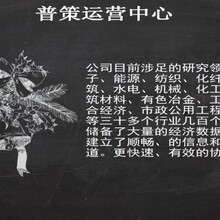 普策运营中心
公司目前涉足的研究领
子、能源、纺织、化纤
筑、水电、机械、化工
筑材料、有色冶金、工
合经济、市政公用工程
等三十多个行业几百个
储备了大量的经济数据
建立了顺畅、的信息和
道。更快速、有效的协